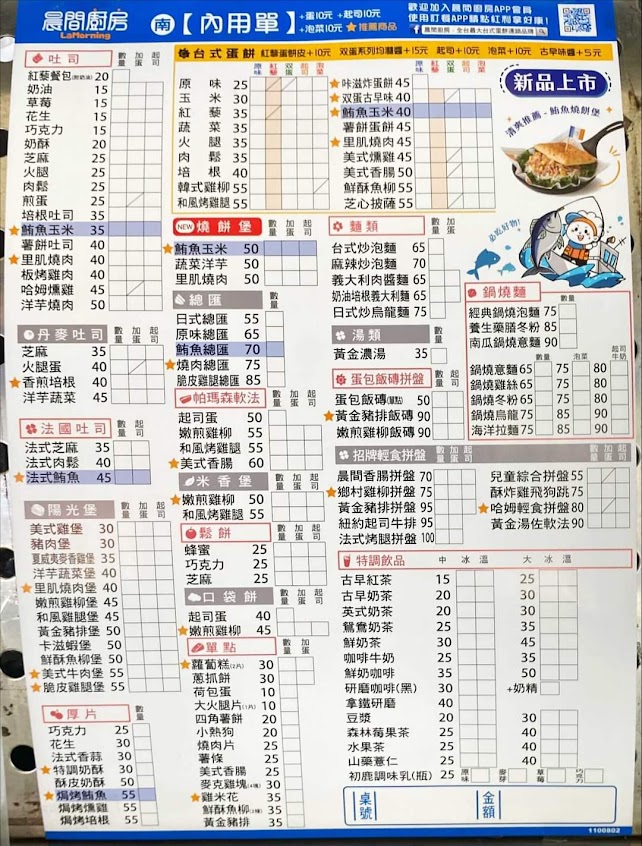 晨間廚房
LaMorning
南【內用單】
+蛋10元 +起司10元
+泡菜10元 ★推薦商品
歡迎加入晨間廚房APP會員
使用訂餐APP請點紅利拿好康!
晨間廚房 - 全台最大台式蛋餅連鎖品牌
吐司 數量 加蛋 起司
紅藜餐包(附奶油) 20
奶油 15
草莓 15
花生 15
巧克力 15
奶酥 20
芝麻 20
火腿 25
肉鬆 25
煎蛋 20
培根吐司 35
★鮪魚玉米 35
薯餅吐司 40
★里肌燒肉 40
板烤雞肉 40
哈姆燻雞 45
洋芋燒肉 50
丹麥吐司 數量 加蛋 起司
芝麻 35
火腿蛋 40
★香煎培根 40
洋芋蔬菜 45
法國吐司 數量 加蛋 起司
法式芝麻 35
法式肉鬆 40
★法式鮪魚 45
陽光堡 數量 加蛋 起司
美式雞堡 30
豬肉堡 30
夏威夷麥香雞堡 35
洋芋蔬菜堡 40
★里肌燒肉堡 40
嫩煎雞柳堡 45
和風雞腿堡 45
黃金豬排堡 50
卡滋蝦堡 50
鮮酥魚柳堡 50
★美式牛肉堡 55
★脆皮雞腿堡 55
厚片 數量
巧克力 25
花生 30
法式香蒜 30
★特調奶酥 30
酥皮奶酥 50
★焗烤鮪魚 55
焗烤燻雞 55
焗烤培根 55
台式蛋餅 紅藜蛋餅皮+10元 双蛋系列均獨醬+15元 起司+10元 泡菜+10元 古早味醬+5元
原味 紅藜 双蛋 起司 泡菜
原味 25
玉米 30
紅藜 35
蔬菜 35
火腿 35
肉鬆 35
培根 40
韓式雞柳 55
和風雞腿 55
原味 紅藜 双蛋 起司 泡菜
★咔滋炸蛋餅 45
★双蛋古早味 40
★鮪魚玉米 40
薯餅蛋餅 45
★里肌燒肉 45
美式燻雞 45
美式香腸 50
鮮酥魚柳 55
芝心披薩 55
新品上市
清爽推薦 - 鮪魚燒餅堡
必吃好物!
NEW 燒餅堡 數量 加蛋 起司
★鮪魚玉米 50
蔬菜洋芋 50
里肌燒肉 50
總匯 數量 加蛋 起司
日式總匯 55
原味總匯 65
鮪魚總匯 70
★燒肉總匯 75
脆皮雞腿總匯 85
帕瑪森軟法 數量 加蛋 起司
起司蛋 50
嫩煎雞柳 55
和風雞腿 55
★美式香腸 60
米香堡 數量 加蛋 起司
★嫩煎雞柳 50
和風雞腿 55
鬆餅 數量
蜂蜜 25
巧克力 25
芝麻 25
口袋餅 數量 加蛋 起司
起司蛋 40
★嫩煎雞柳 45
單點 數量 加蛋
★蘿蔔糕(2片) 30
蔥抓餅 30
荷包蛋 10
大火腿片(1片) 10
四角薯餅 20
小熱狗 20
燒肉片 25
薯條 25
美式香腸 25
麥克雞塊(4塊) 30
★雞米花 35
鮮酥魚柳(3條) 35
黃金豬排 35
麵類 數量 加蛋
台式炒泡麵 65
麻辣炒泡麵 70
義大利肉醬麵 65
奶油培根義大利麵 65
日式炒烏龍麵 65
湯類 數量
黃金濃湯 35
蛋包飯磚拼盤 數量
蛋包飯磚(單點) 50
★黃金豬排飯磚 90
嫩煎雞柳飯磚 90
鍋燒麵 數量
經典鍋燒泡麵 75
養生藥膳冬粉 85
南瓜鍋燒意麵 90
數量 泡菜 起司牛奶
鍋燒意麵 65 75 80
鍋燒雞絲 65 75 80
鍋燒冬粉 65 75 80
鍋燒烏龍 75 85 90
海洋拉麵 75 85 90
招牌輕食拼盤 數量 加蛋 起司 數量 加蛋 起司
晨間香腸拼盤 70
★鄉村雞柳拼盤 75
黃金豬排拼盤 95
紐約起司牛排 95
法式烤腿拼盤 100
兒童綜合拼盤 55
酥炸雞飛狗跳 75
★哈姆輕食拼盤 80
黃金湯佐軟法 90
特調飲品 中 冰 溫 大 冰 溫
古早紅茶 15 25
古早奶茶 20 30
英式奶茶 20 30
鴛鴦奶茶 25 35
鮮奶茶 30 45
咖啡牛奶 25 35
鮮奶咖啡 35 50
研磨咖啡(黑) 30 +奶精
拿鐵研磨 40
豆漿 20 30
森林莓果茶 25 40
水果茶 25 40
山藥薏仁 25 40
初鹿調味乳(瓶) 25 原味 麥芽 草莓 巧克力
桌號
金額
1100802